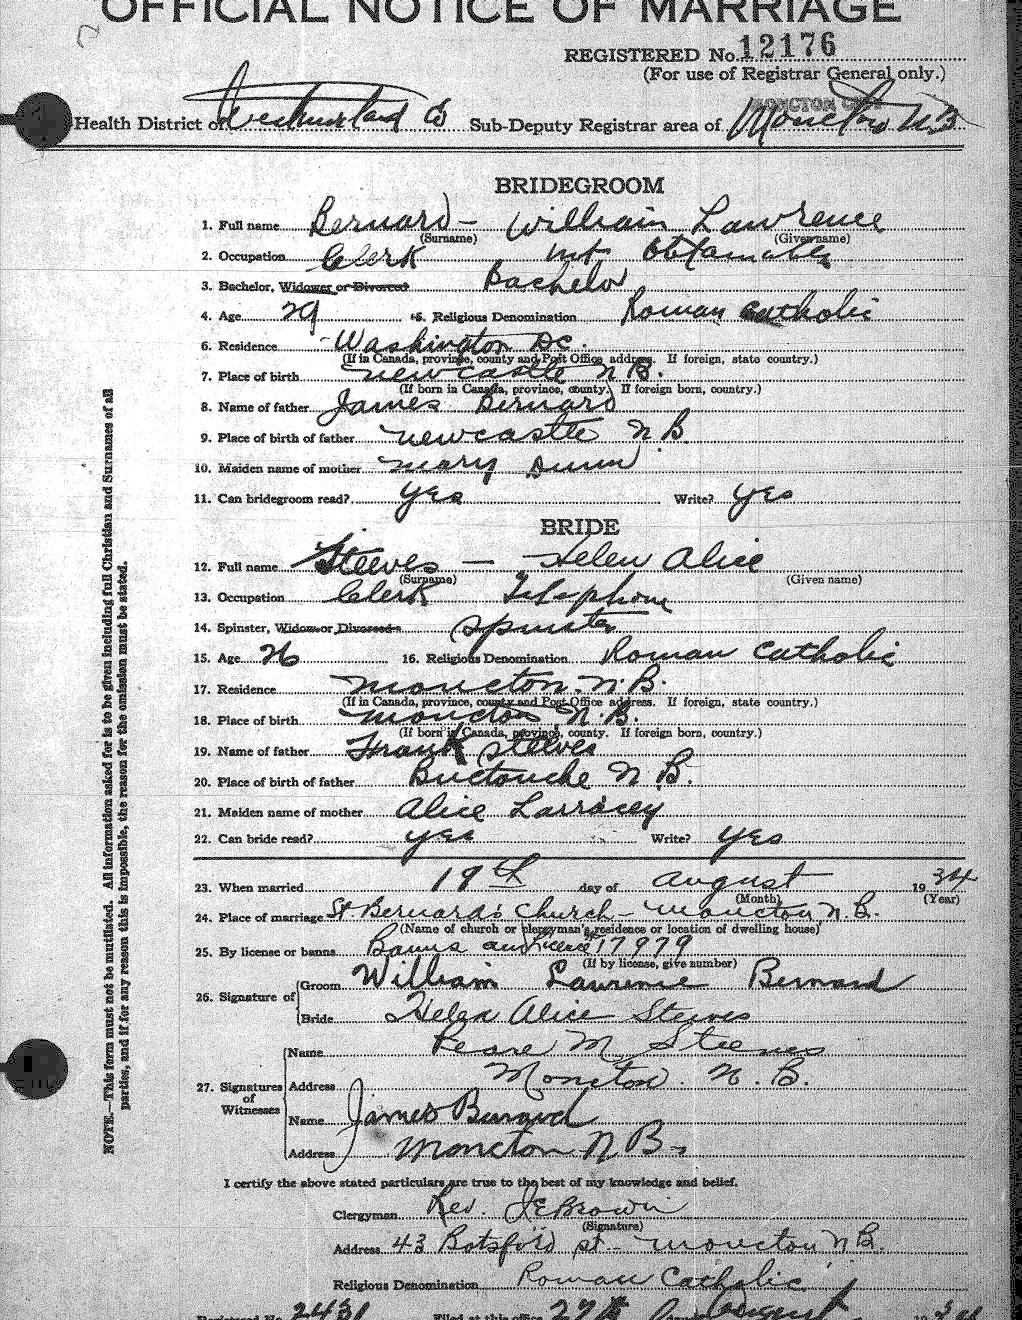 OFFICIAL NOTICE OF MARRIAGE
REGISTERED No. 12176
(For use of Registrar General only.)
MONCTON CITY
Health District of Westmorland Co Sub-Deputy Registrar area of Moncton N.B
BRIDEGROOM
1. Full name Bernard - William Lawrence
(Surname) (Given name)
2. Occupation Clerk not obtainable
3. Bachelor, Widower or Divorced Bachelor
4. Age 29 5. Religious Denomination Roman Catholic
6. Residence Washington DC.
(If in Canada, province, county and Post Office address. If foreign, state country.)
7. Place of birth Newcastle N.B.
(If born in Canada, province, county. If foreign born, country.)
8. Name of father James Bernard
9. Place of birth of father Newcastle N B.
10. Maiden name of mother Mary Dunn
11. Can bridegroom read? yes Write? yes
BRIDE
12. Full name Steeves - Helen Alice
(Surname) (Given name)
13. Occupation Clerk Telephone
14. Spinster, Widow or Divorced Spinster
15. Age 26 16. Religious Denomination Roman Catholic
17. Residence Moncton. N.B.
(If in Canada, province, county and Post Office address. If foreign, state country.)
18. Place of birth Moncton N.B.
(If born in Canada, province, county. If foreign born, country.)
19. Name of father Frank Steeves
20. Place of birth of father Buctouche N.B.
21. Maiden name of mother Alice Larracey
22. Can bride read? yes Write? yes
23. When married day of August 1934
(Month) (Year)
24. Place of marriage St Bernard's Church - Moncton N.B.
(Name of church or clergyman's residence or location of dwelling house)
25. By license or banns Banns and Licence 17979
(If by license, give number)
26. Signature of
Groom William Lawrence Bernard
Bride Helen Alice Steeves
27. Signatures of Witnesses
Name M. Steeves
Address Moncton. N.B.
Name James Bernard
Address Moncton N B.
I certify the above stated particulars are true to the best of my knowledge and belief.
Clergyman Rev. Brown
(Signature)
Address 43 Botsford st. - Moncton N.B.
Religious Denomination Roman Catholic
Filed at this office 27th August
NOTE.—This form must not be mutilated. All information asked for is to be given including full Christian and Surnames of all
parties, and if for any reason this is impossible, the reason for the omission must be stated.